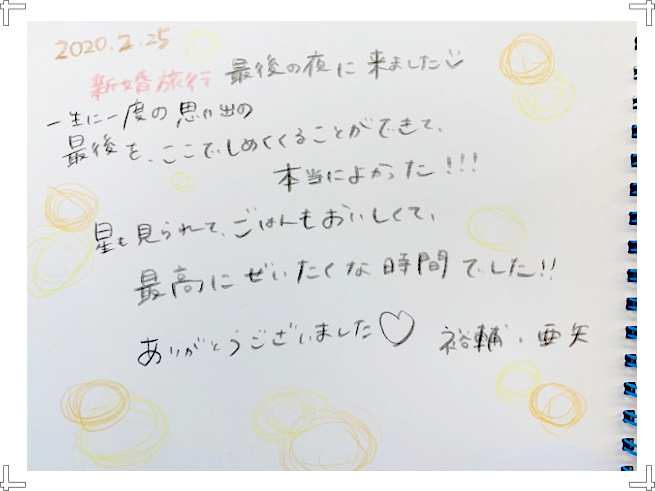 2020.2.25
新婚旅行 最後の夜に来ました
一生に一度の思い出の
最後を、ここでしめくくることができて、
本当によかった!!!
星も見られて、ごはんもおいしくて、
最高にぜいたくな時間でした!!
ありがとうございました♡ 裕輔・亜矢